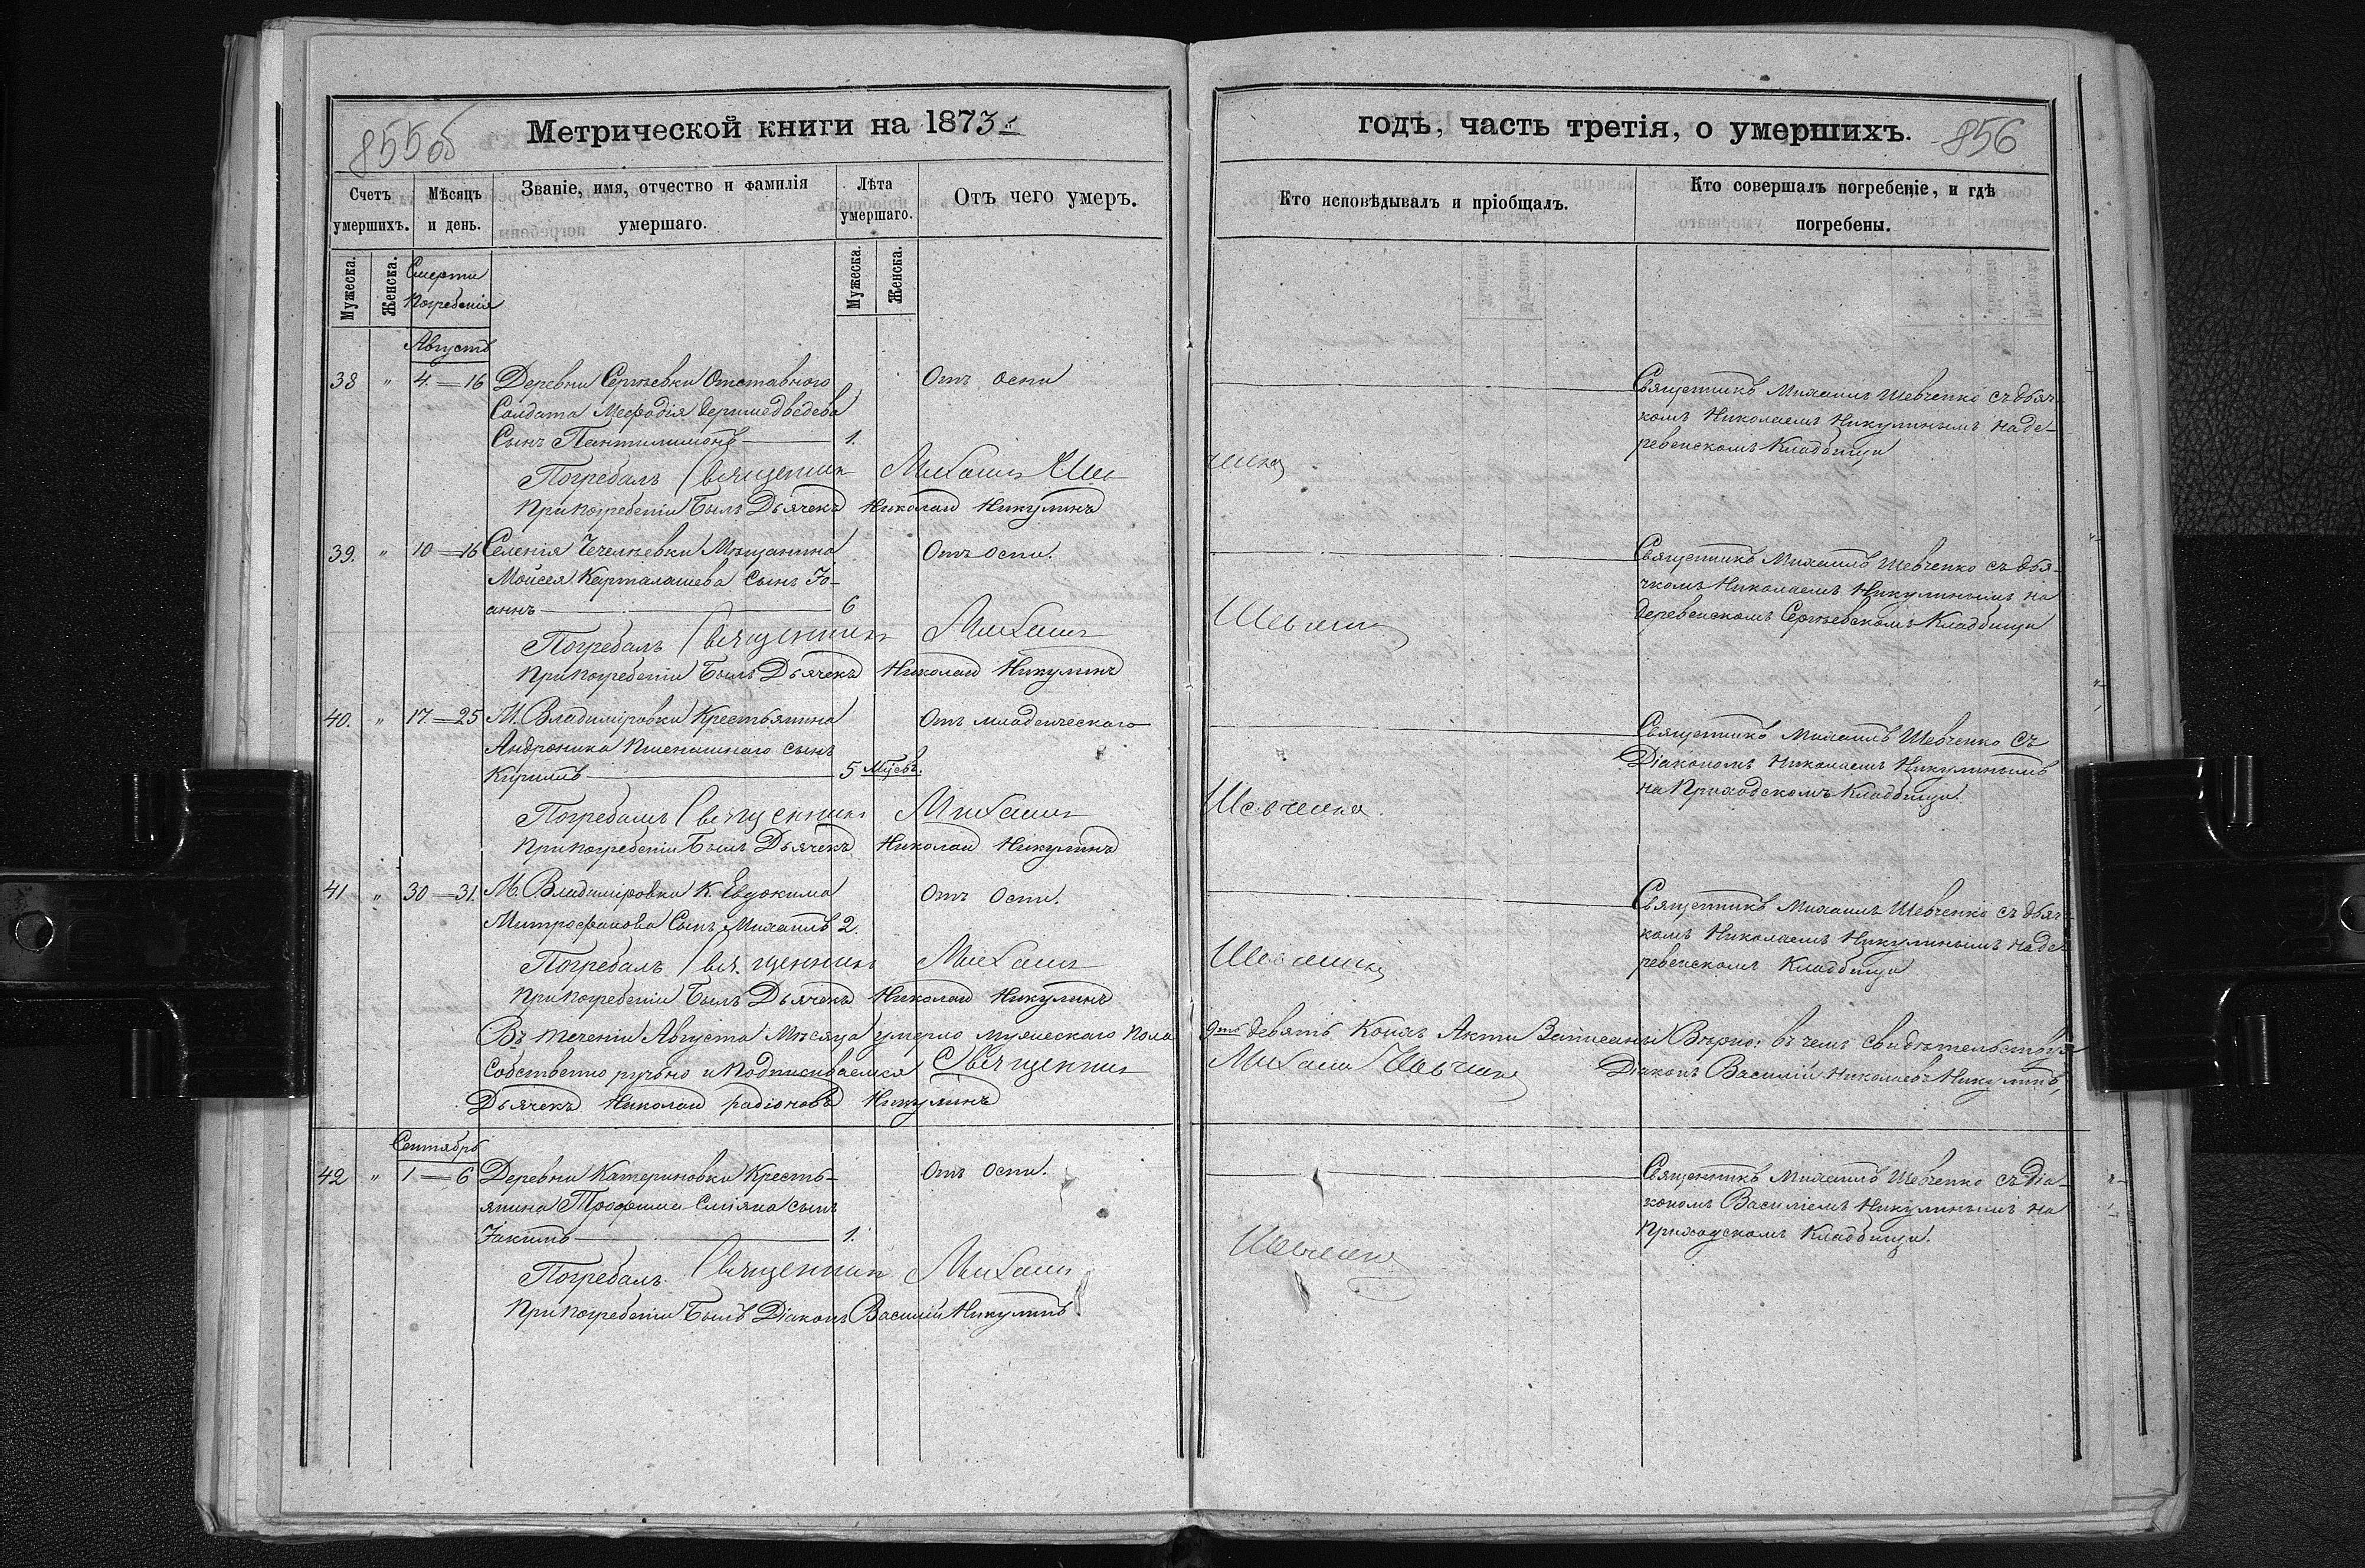 855об
Метрической книги на 1873 й
годъ, часть третія, о умершихъ.
856
Счетъ умершихъ.
Мѣсяцъ и день.
Званіе, имя, отчество и фамилія умершаго.
Лѣта умершаго.
Отъ чего умеръ.
Кто исповѣдывалъ и пріобщалъ.
Кто совершалъ погребеніе, и гдѣ погребены.
Мужеска.
Женска.
Смерти
Погребенія
Мужеска.
Женска.
Августъ
38 " 4.—16 Деревни Сергѣевки Отставного
Солдата Мефодія
Сынъ Пантилимонъ — 1.
Отъ оспи
Священникъ Михаилъ Шевченко съ дьяч-
комъ Николаемъ Никулинымъ на де-
ревенскомъ Кладбищи
Погребалъ Священник Михаилъ Шев
ченко
При погребеніи Былъ Дьячекъ Николай Никулинъ
39. " 10—16 Селенія Чечелѣевки Мѣщанина
Моисея Карталашева сынъ Іо-
аннъ — 6
Отъ оспи.
Священникъ Михаилъ Шевченко съ дья-
чкомъ Николаемъ Никулинымъ на
деревенскомъ Сергѣевскомъ Кладбищи
Погребалъ Священникъ Михаилъ
Шевченко
При погребеніи Былъ Дьячекъ Николай Никулинъ
40. " 17.—25 М. Владиміровки Крестьянина
Андроника Пшенишнаго сынъ
Кирилъ — 5 мѣсъ.
Отъ младенческаго
Священникъ Михаилъ Шевченко Съ
Діакономъ Николаемъ Никулинымъ
на Приходскомъ Кладбищи.
Погребалъ Священникъ Михаилъ
Шевченко.
При погребеніи Былъ Дьячекъ Николай Никулинъ
41 " 30—31. М. Владиміровки К. Евдокима
Митрофанова Сынъ Михаилъ 2.
Отъ Оспи.
Священникъ Михаилъ Шевченко съ дьяч-
комъ Николаемъ Никулинымъ на де-
ревенскомъ Кладбищи
Погребалъ Священникъ Михаилъ
Шевченко
При погребеніи Былъ Дьячекъ Николай Никулинъ
Въ теченіи Августа Мѣсяца умерло мужескаго пола 9ть девять Коихъ Акти Записани Вѣрно: въ чемъ свидѣтельствуя
Собственно ручьно и Подписиваемся Священникъ Михаилъ Шевченко Діаконъ Василій Николаевъ Никулинъ,
Дьячекъ Николай Радіоновъ Никулинъ
Сентябрь
42 " 1—6 Деревни Катериновки Кресть-
янина Трофима сынъ
Іакимъ — 1.
Отъ Оспи.
Священникъ Михаилъ Шевченко съ діа-
кономъ Василіемъ Никулинымъ на
Приходскомъ Кладбищи.
Погребалъ Священник Михаилъ
Шевченко
При погребеніи Былъ Діаконъ Василій Никулинъ